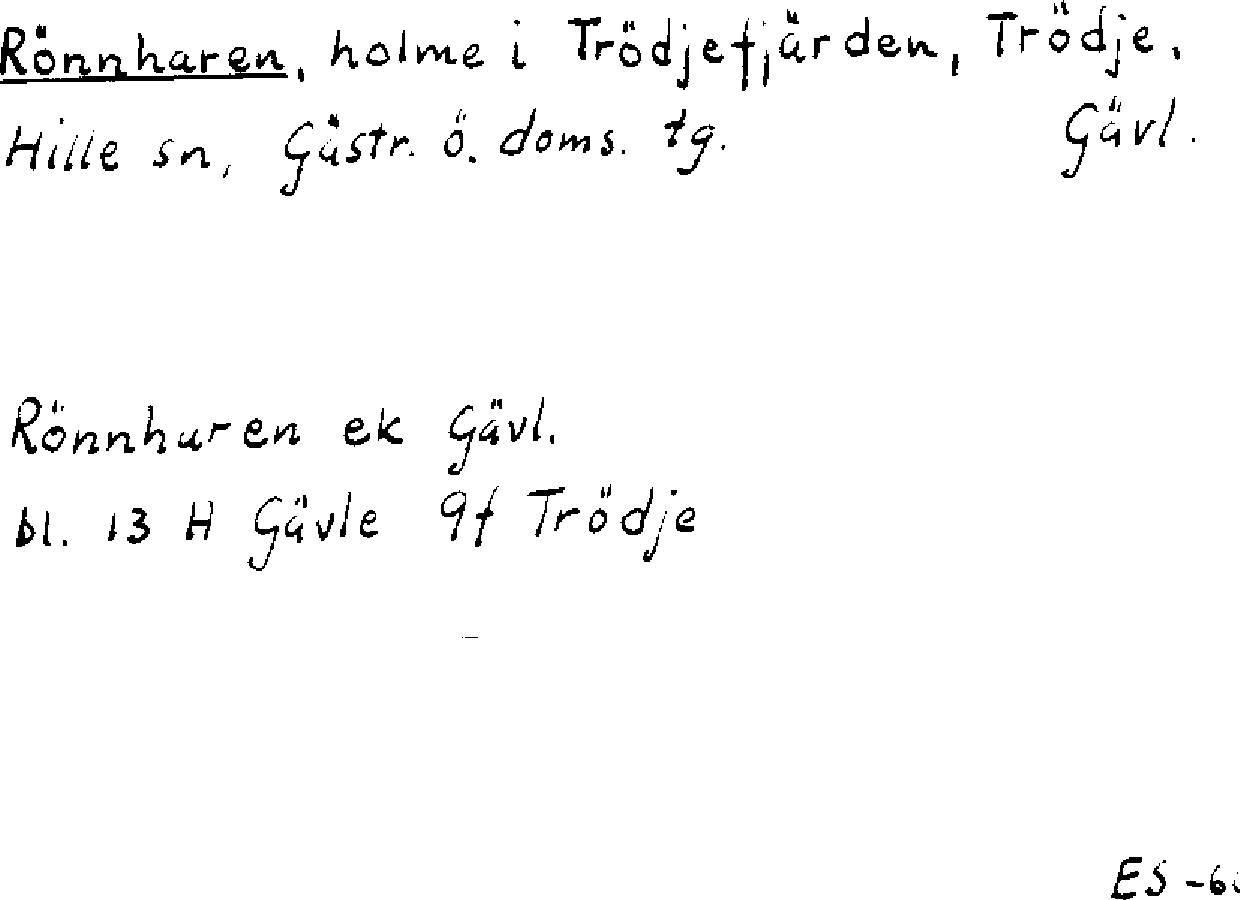 Rönnharen, holme i Trödjefjärden, Trödje,
Hille sn, Gästr. ö. doms. tg. Gävl.
Rönnharen ek Gävl.
bl. 13 H Gävle 9f Trödje
ES